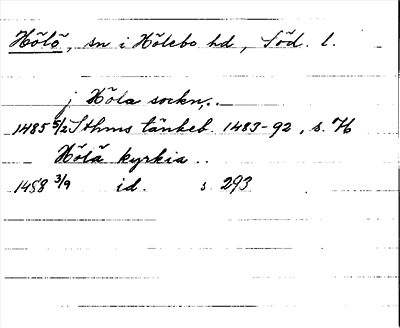 Hölö, sn i Hölebo hd, Söd. l.
j Höla sockn..
1485 5/2 Sthms tänkeb. 1483-92, s. 
Hölä kyrkia ..
1458 3/9 id. s. 293